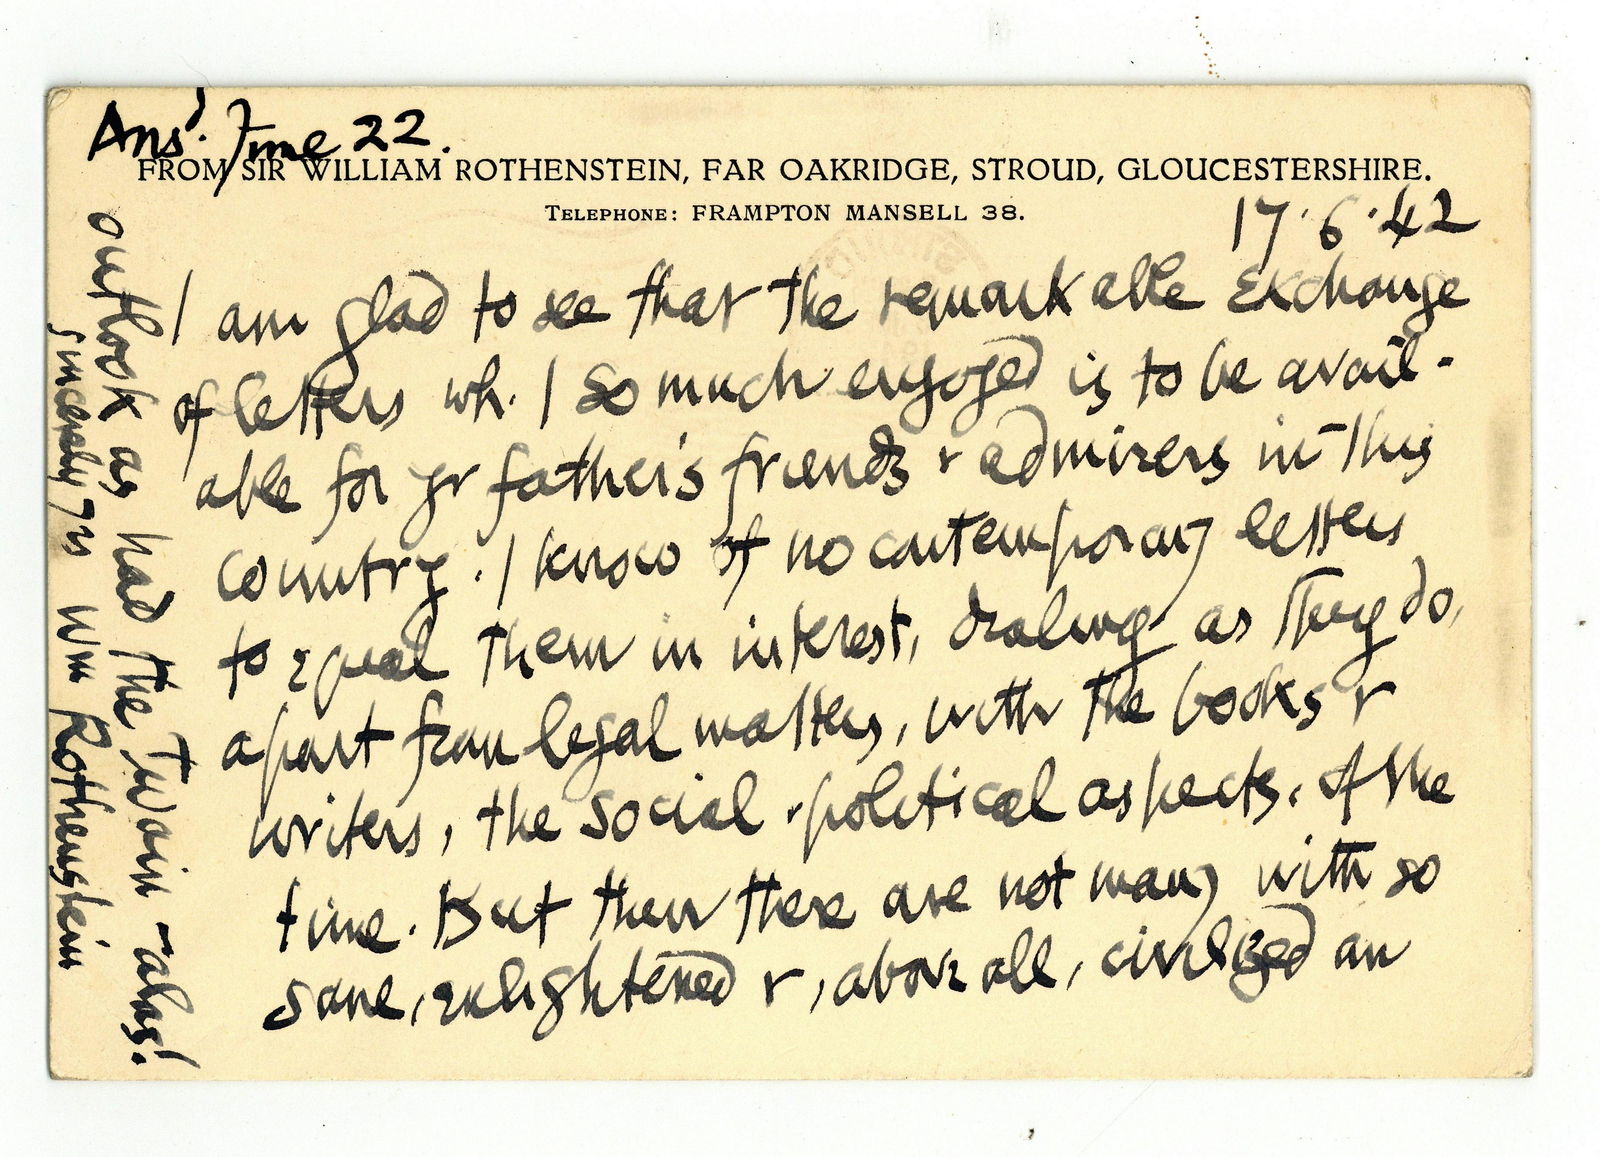 Ansd. June 22.
FROM SIR WILLIAM ROTHENSTEIN, FAR OAKRIDGE, STROUD, GLOUCESTERSHIRE.
TELEPHONE: FRAMPTON MANSELL 38.
17.6.42
I am glad to see that the remarkable exchange
of letters wh. I so much enjoyed is to be avail-
able for yr father's friends & admirers in this
country. I know of no contemporary letters
to equal them in interest, dealing as they do,
apart from legal matters, with the books &
writers, the social & political aspects, of the
time. But then there are not many with so
sane, enlightened &, above all, civilized an
outlook as had the Twain - alas!
sincerely yrs Wm Rothenstein